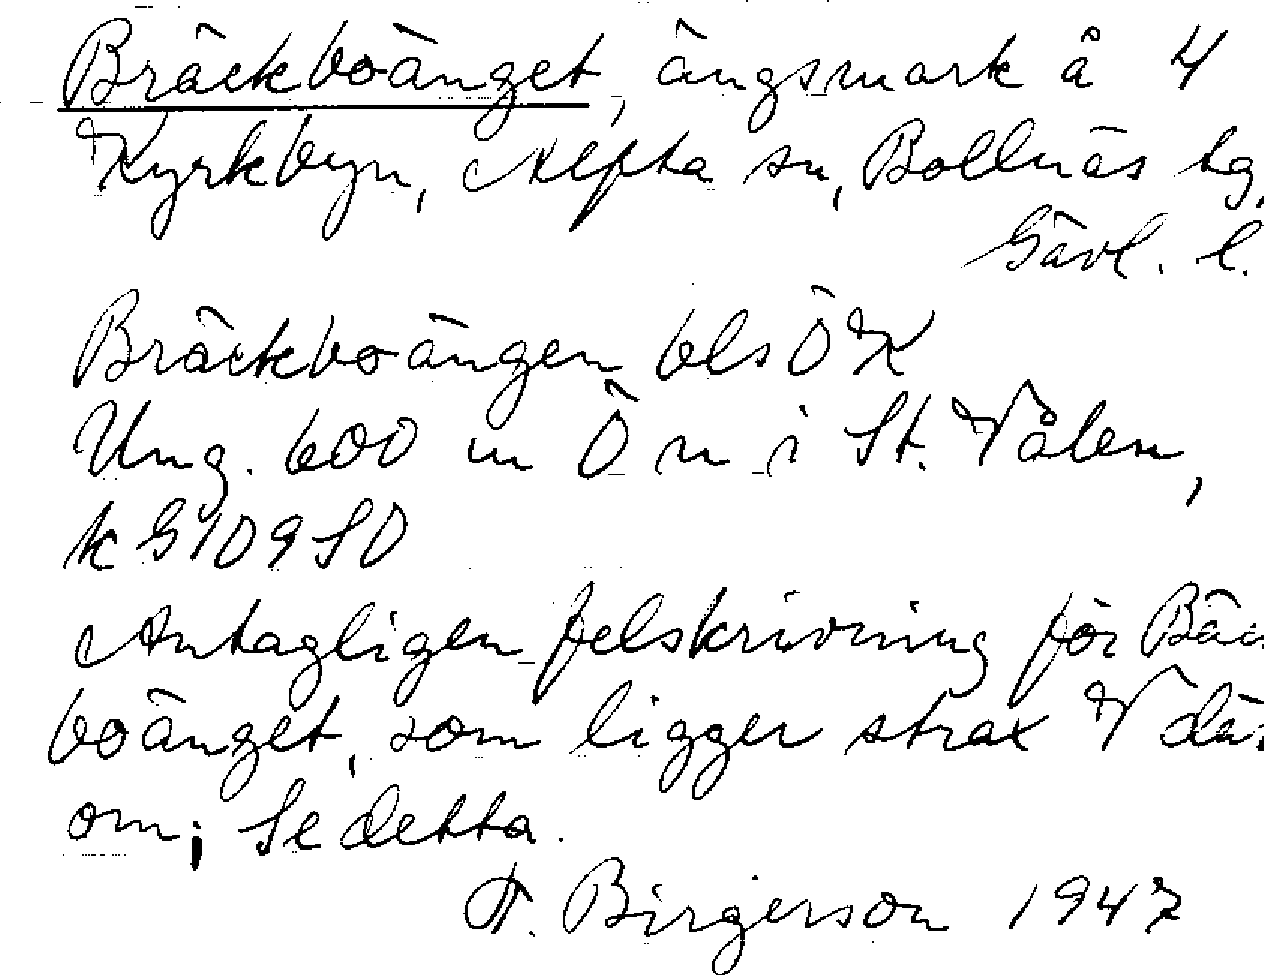 Bräckboänget, ängsmark å 4
Kyrkbyn, Alfta sn, Bollnäs tg,
Gävl. l.
Bräckboängen bls Ö K
Ung. 600 m Ö n i St. Vålen,
k G 10950
Antagligen felskrivning för Bäck
boänget, som ligger strax V där
om; Se detta.
F. Birgerson 1947